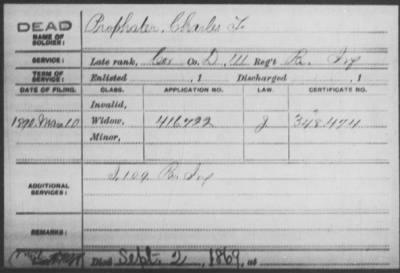 DEAD
NAME OF SOLDIER: Prophater, Charles F.
SERVICE: Late rank, Cor Co. D, 11 Reg't Pa. Inf
TERM OF SERVICE: Enlisted , 1 Discharged , 1
DATE OF FILING. CLASS. APPLICATION NO. LAW. CERTIFICATE NO.
Invalid,
1890. Mar. 10 Widow, 416,722 J 348,474
Minor,
ADDITIONAL SERVICES: I. 109. Pa. Inf
REMARKS:
Died Sept. 2, 1869, at